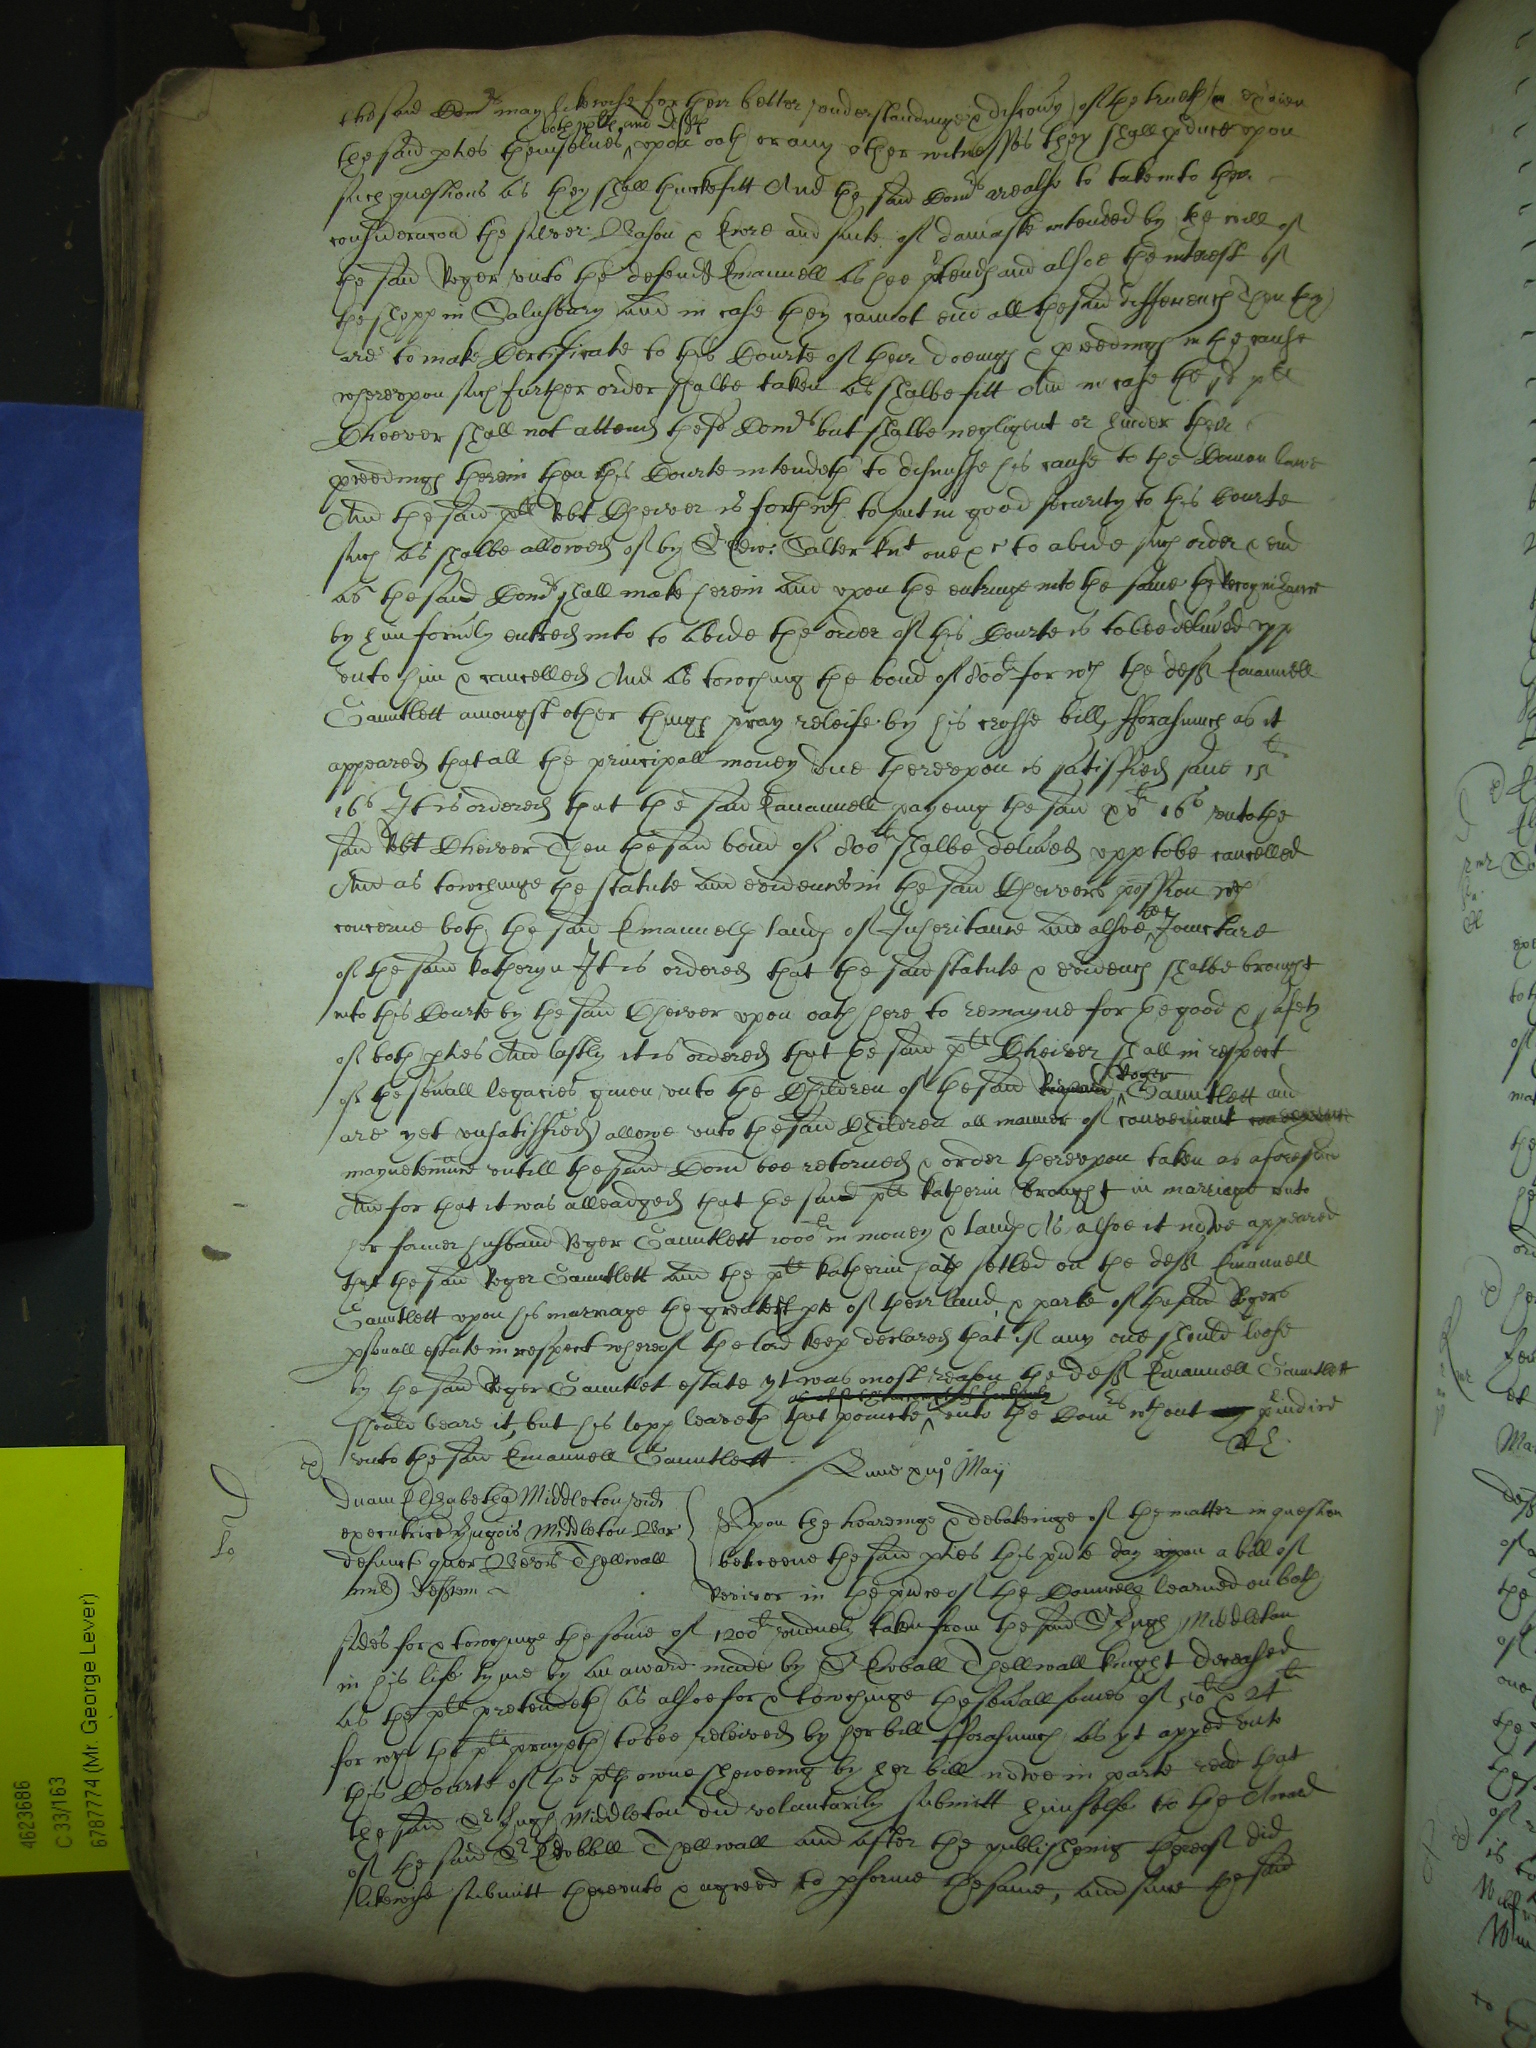 the said Com^rs may likewise for their better understandinge & discovy of the trueth in
both p^ltes and def^tes
the said p^ties themselves upon oath or any other witnesses they shall p̱duce upon
such questions as they shall thincke fitt And the said Com^rs are also to take into their
consideracon the silver Bason & Ewre and sute of damaske intended by the will of
the said Roger unto the defend^t Emanuell as hee p^rtendeth and alsoe the interest of
the shopp in Salusbury And in case they cannot end all the said differences Then they
are to make Certificate to this Courte of their doeings & p̱ceedings in the cause
whereupon such further order shalbe taken as shalbe fitt And in case the s^d p^lt
Cheever shall not attend these Com^rs but shalbe negligent or hinder their
p̱ceedings therein then this Courte intendeth to dismisse his cause to the Comon lawe
And the said p^lt Robt Cheiver is forthwth to put in good security to this Courte
such as shalbe allowed of by S^r Edw: Salter kn^t one &c to abide such order & end
as the said Com^rs shall make herein And upon the entringe into the same the Recognizance
by him form̃ly entred into to abide the order of this Courte is to bee deliṽed upp
unto him & cancelled And as towching the bond of 800^li for wch the def^t Emanuell
Gauntlett amongst other things pray releife by his crosse bill, fforasmuch as it
appeared that all the principall money due thereupon is satisffied save 15^li
16^s It is ordered that the said Emanuell payeing the said xv^li 16^s unto the
said Robt Cheiver Then the said bond of 800^li shalbe deliṽed upp to be cancelled
And as towchinge the statute and evidences in the said Cheivers possion wch
concerne both the said Emanuells lands of Inheritance and alsoe the Joincture
of the said Katheryn It is ordered that the said statute & evidences shalbe brought
into this Courte by the said Cheiver upon oath here to remayne for the good & safety
of both p^ties And lastly it is ordered that the said p^lt Cheiver shall in respect
of the seṽall legacies given unto the Children of the said Roger Gauntlett and
are yet unsatisffied allowe unto the said Children all manner of convenient
mayntenance untill the said Com̃ bee retorned & order thereupon taken as aforesaid
And for that it was alleadged that the said p^lt Katherin brought in marriage unto
her former husband Roger Gauntlett 1000^li in money & lands As alsoe it nowe appeared
that the said Roger Gauntlett and the p^lt Katherin hath setled on the def^t Emanuell
Gauntlett upon his marriage the greatest p^te of their land & parte of the said Rogers
p̱sonall estate in respect whereof the lord keep̱ declared that if any one should loose
by the said Roger Gauntlet estate yt was most reason the def^t Emanuell Gauntlett
should beare it, but his lopp leaveth that poincte unto the Com^rs wthout p̱iudice
unto the said Emanuell Gauntlett
Lune xiij^o Maij
Dnam Elizabetha Middleton vid
executrice Hugois Middleton Bar
defunct quer Verũs Thellwall
mil def^tem
Upon the hearinge & debateinge of the matter in question
betweene the said p^ties this p̱nte day upon a bill of
Revivor in the p̱nce of the Councell learned on both
sides for & towchinge the some of 1200^li unduely taken from the said S^r Hugh Middleton
in his life tyme by an award made by S^r Euball Thellwall knight deceased
as the p^lt pretendeth as alsoe for & towchinge the seṽall somes of 50^li & 24^li
for wch the p^lt prayeth to bee releived by her bill fforasmuch as yt appeed unto
this Courte of the p^lts owne sheweing by her bill nowe in parte read that
the said S^r Hugh Middleton did voluntarily submitt himselfe to the Award
of the said S^r Eubball Thellwall and after the publisheing thereof did
likewise submitt thereunto & agreed to p̱forme the same, and since the said
4623686
C 33/163
6787774 (Mr. George Lever)